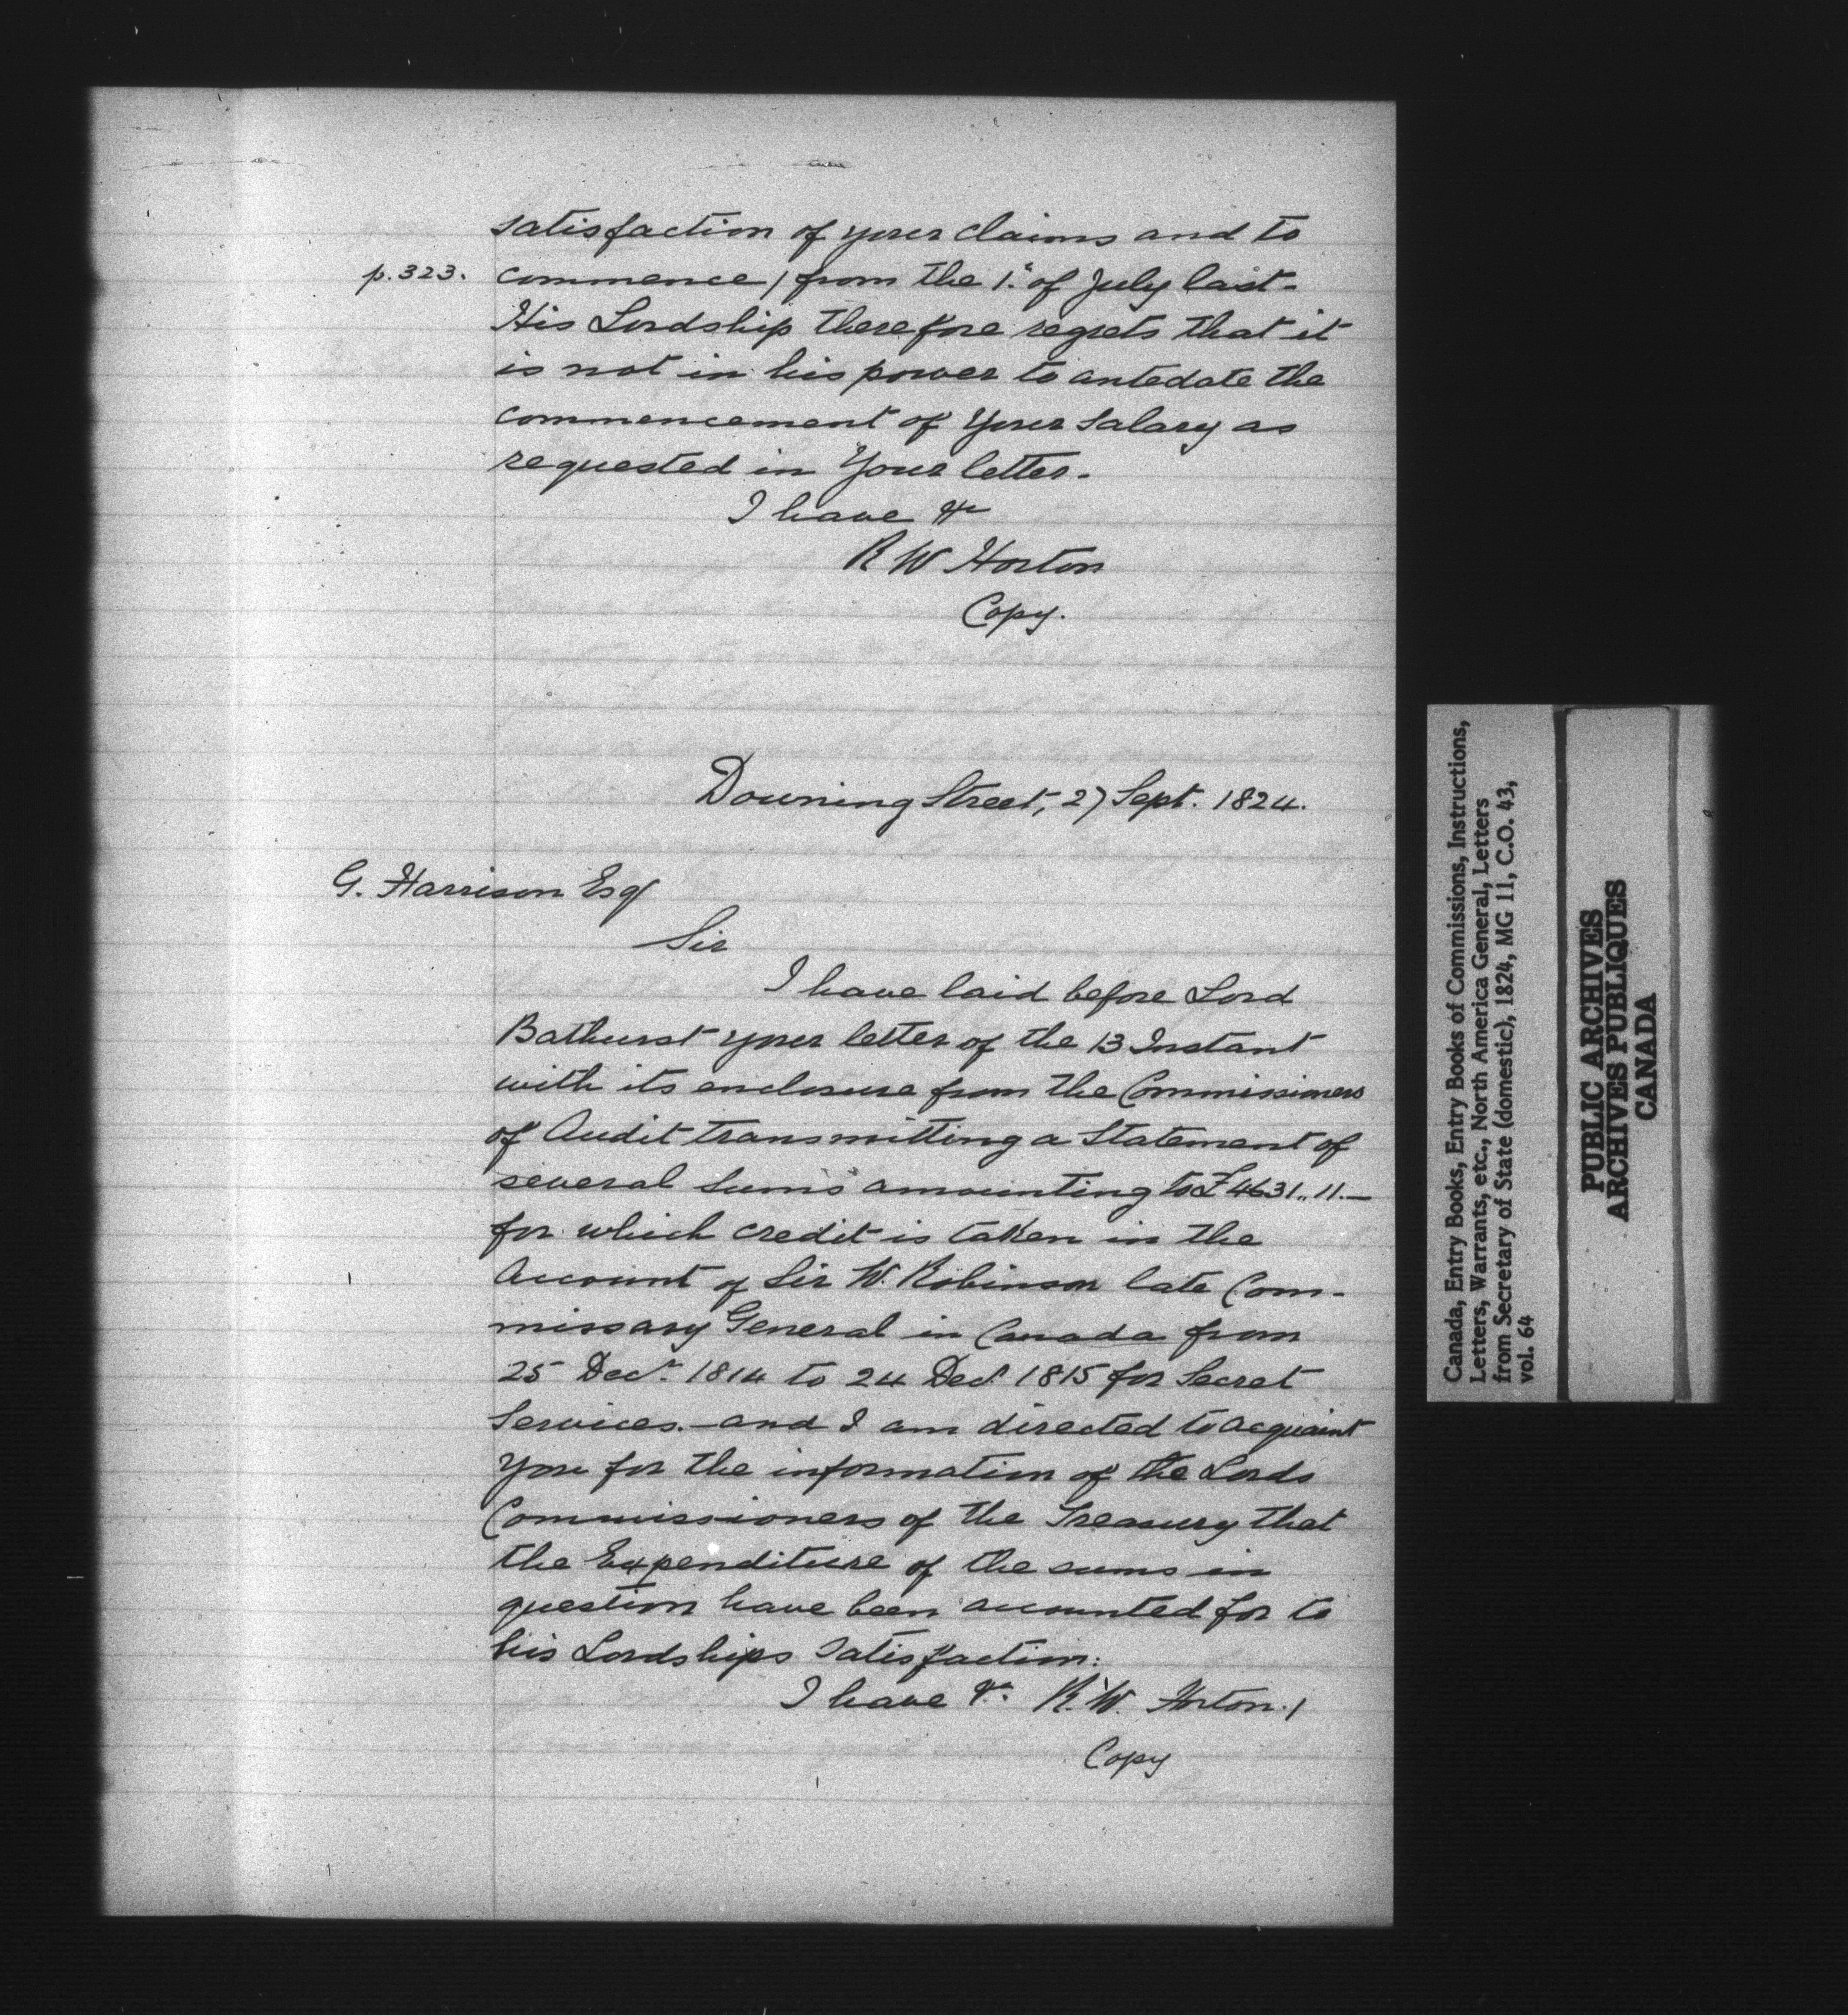 satisfaction of your claims and to
p. 323. commence / from the 1st of July last.
His Lordship therefore regrets that it
is not in his power to antedate the
commencement of Your Salary as
requested in Your letter.
I have &c
R W Horton
Copy.
Downing Street, 27 Sept. 1824.
G. Harrison Esq
Sir
I have laid before Lord
Bathurst your letter of the 13 Instant
with its enclosure from the Commissioners
of Audit transmitting a Statement of
several Sums amounting to £4631,, 11.—
for which credit is taken in the
Account of Sir W. Robinson late Com-
missary General in Canada from
25 Dec. 1814 to 24 Dec. 1815 for Secret
Services.—and I am directed to acquaint
You for the information of the Lords
Commissioners of the Treasury that
the Expenditure of the sums in
question have been accounted for to
his Lordships Satisfaction.
I have &c. R. W. Horton. /
Copy
Canada, Entry Books, Entry Books of Commissions, Instructions,
Letters, Warrants, etc., North America General, Letters
from Secretary of State (domestic), 1824, MG 11, C.O. 43,
vol. 64
PUBLIC ARCHIVES
ARCHIVES PUBLIQUES
CANADA